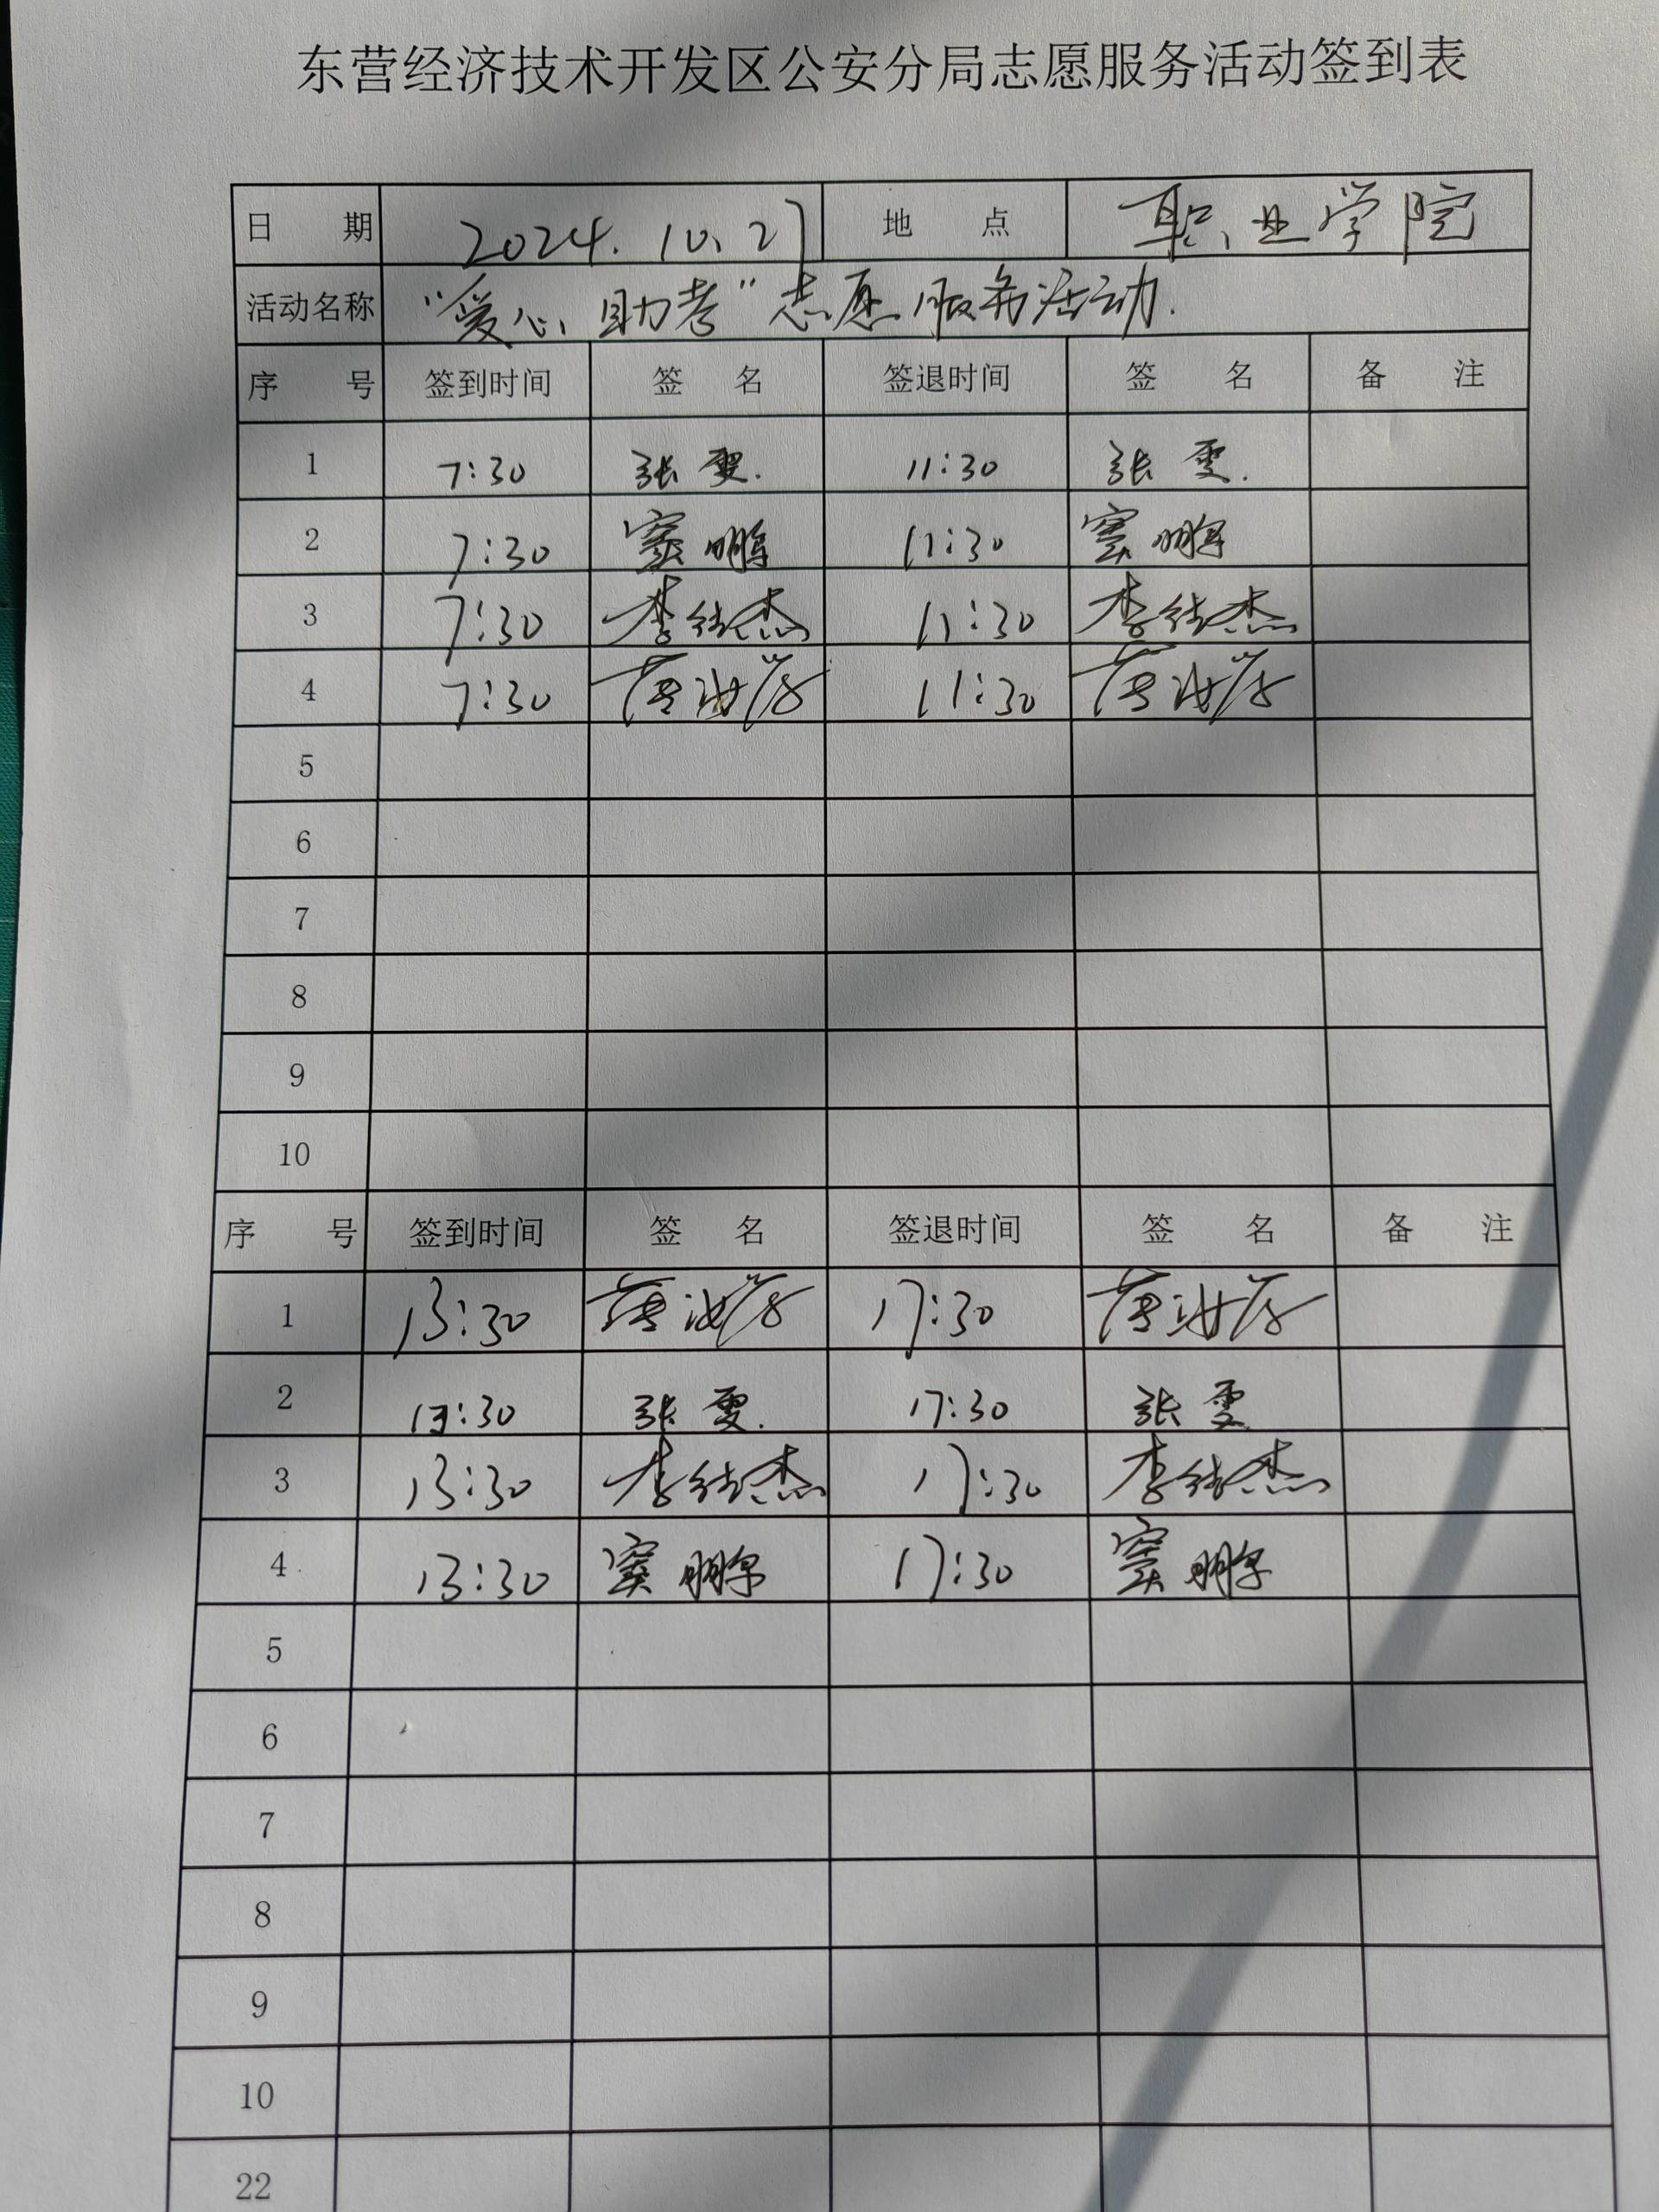 东营经济技术开发区公安分局志愿服务活动签到表
日 期 2024.10.27 地 点 职业学院
活动名称 “爱心助考”志愿服务活动.
序 号 签到时间 签 名 签退时间 签 名 备 注
1 7:30 张雯. 11:30 张雯.
2 7:30 窦鹏 11:30 窦鹏
3 7:30 李 杰 11:30 李 杰
4 7:30 11:30
5
6
7
8
9
10
序 号 签到时间 签 名 签退时间 签 名 备 注
1 13:30 17:30
2 13:30 张雯. 17:30 张雯
3 13:30 李 杰 17:30 李 杰
4 13:30 窦鹏 17:30 窦鹏
5
6
7
8
9
10
22